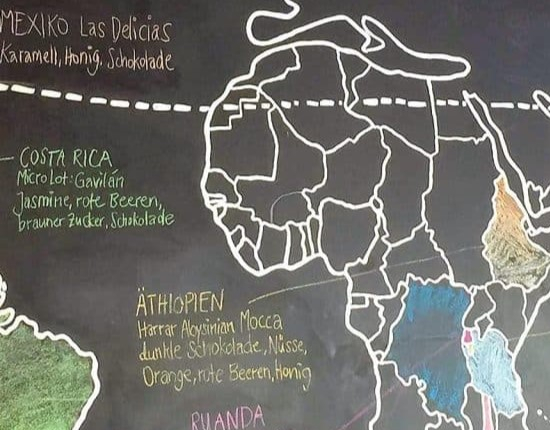 MEXIKO Las Delicias
Karamell, Honig, Schokolade
COSTA RICA
MicroLot: Gavilán
Jasmine, rote Beeren,
brauner Zucker, Schokolade
ÄTHIOPIEN
Harrar Aloysinian Mocca
dunkle Schokolade, Nüsse,
Orange, rote Beeren, Honig
RUANDA